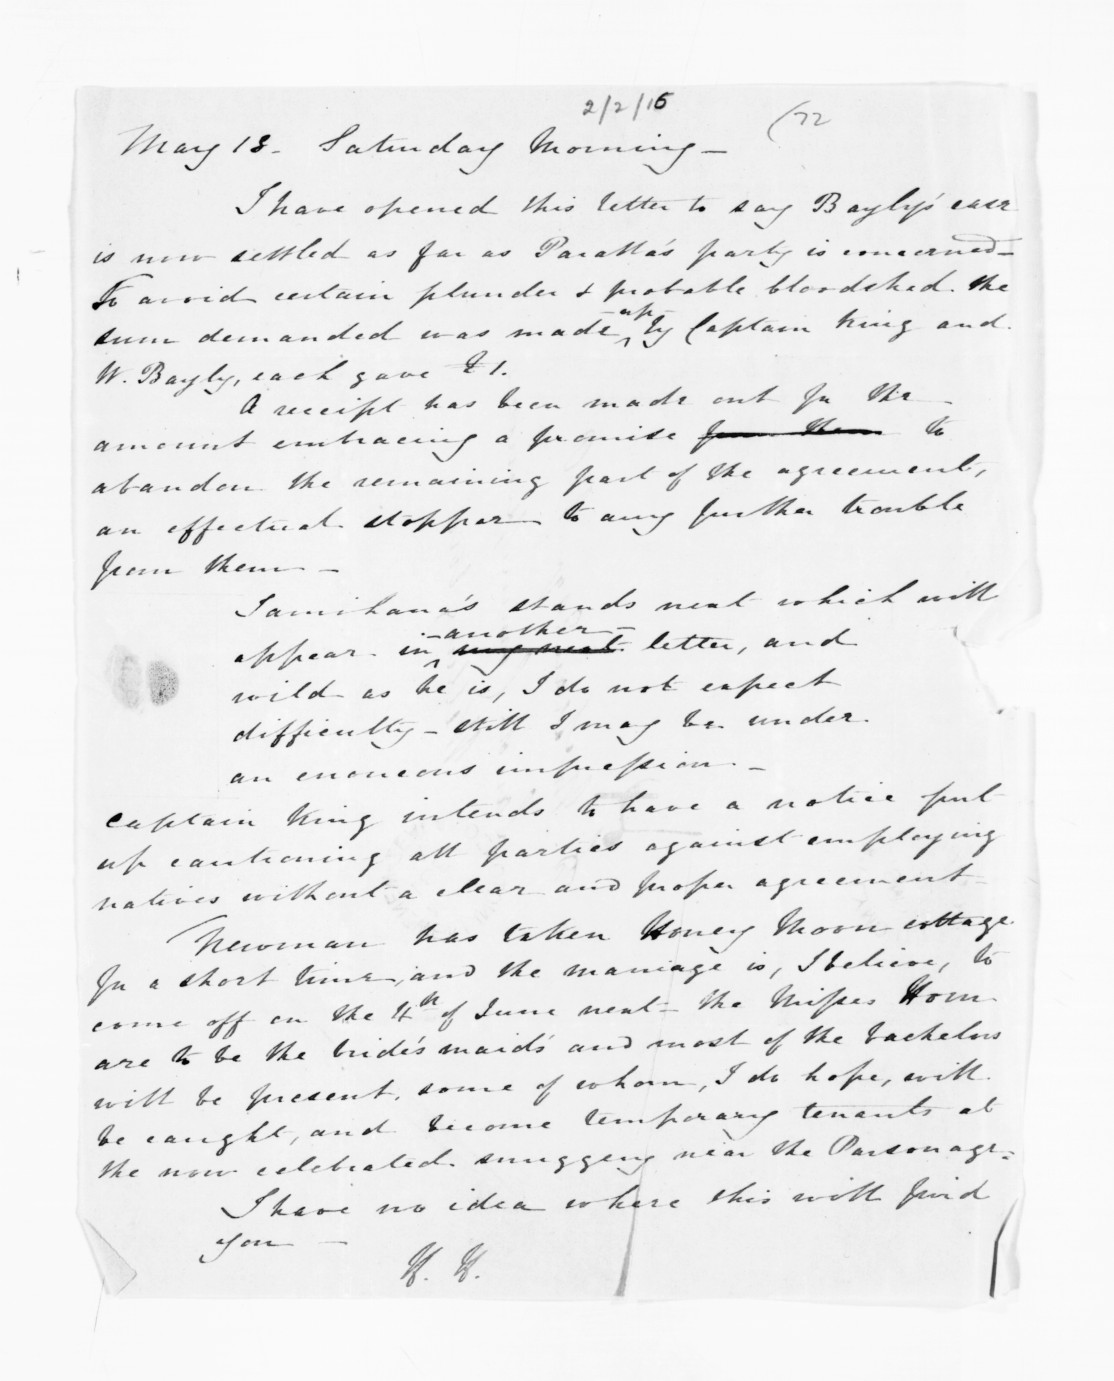 2/2/16
(72
May 18 - Saturday Morning -
I have opened this letter to say Bayly's case
is now settled as far as Paratta's party is concerned -
To avoid certain plunder & probable bloodshed. the
sum demanded was made up by Captain King and
W. Bayly, each gave £1.
A receipt has been made out for the
amount embracing a promise from them to
abandon the remaining part of the agreement,
an effectual stopper to any further trouble
from them -
Tamihana's stands next which will
appear in my next another letter, and
wild as he is, I do not expect
difficulty - still I may be under
an enoneous impression -
Captain King intends to have a notice put
up cautioning all parties against employing
natives without a clear and proper agreement -
Newman has taken Honey Moon cottage
for a short time, and the marriage is, I believe, to
come off on the 4th of June next - the Misses Horn
are to be the bride's maid's and most of the bachelors
will be present, some of whom, I do hope, will
be caught, and become temporary tenants at
the now celebrated snuggery near the Parsonage -
I have no idea where this will find
you -
H. H.